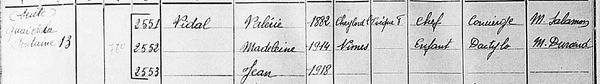 Quai de la
Fontaine 13
2551 Vidal Valérie 1882 Chaylard chef Concierge M. Salamon
2552 Madeleine 1914 Nîmes Enfant Dactylo M. Durand
2553 Jean 1918